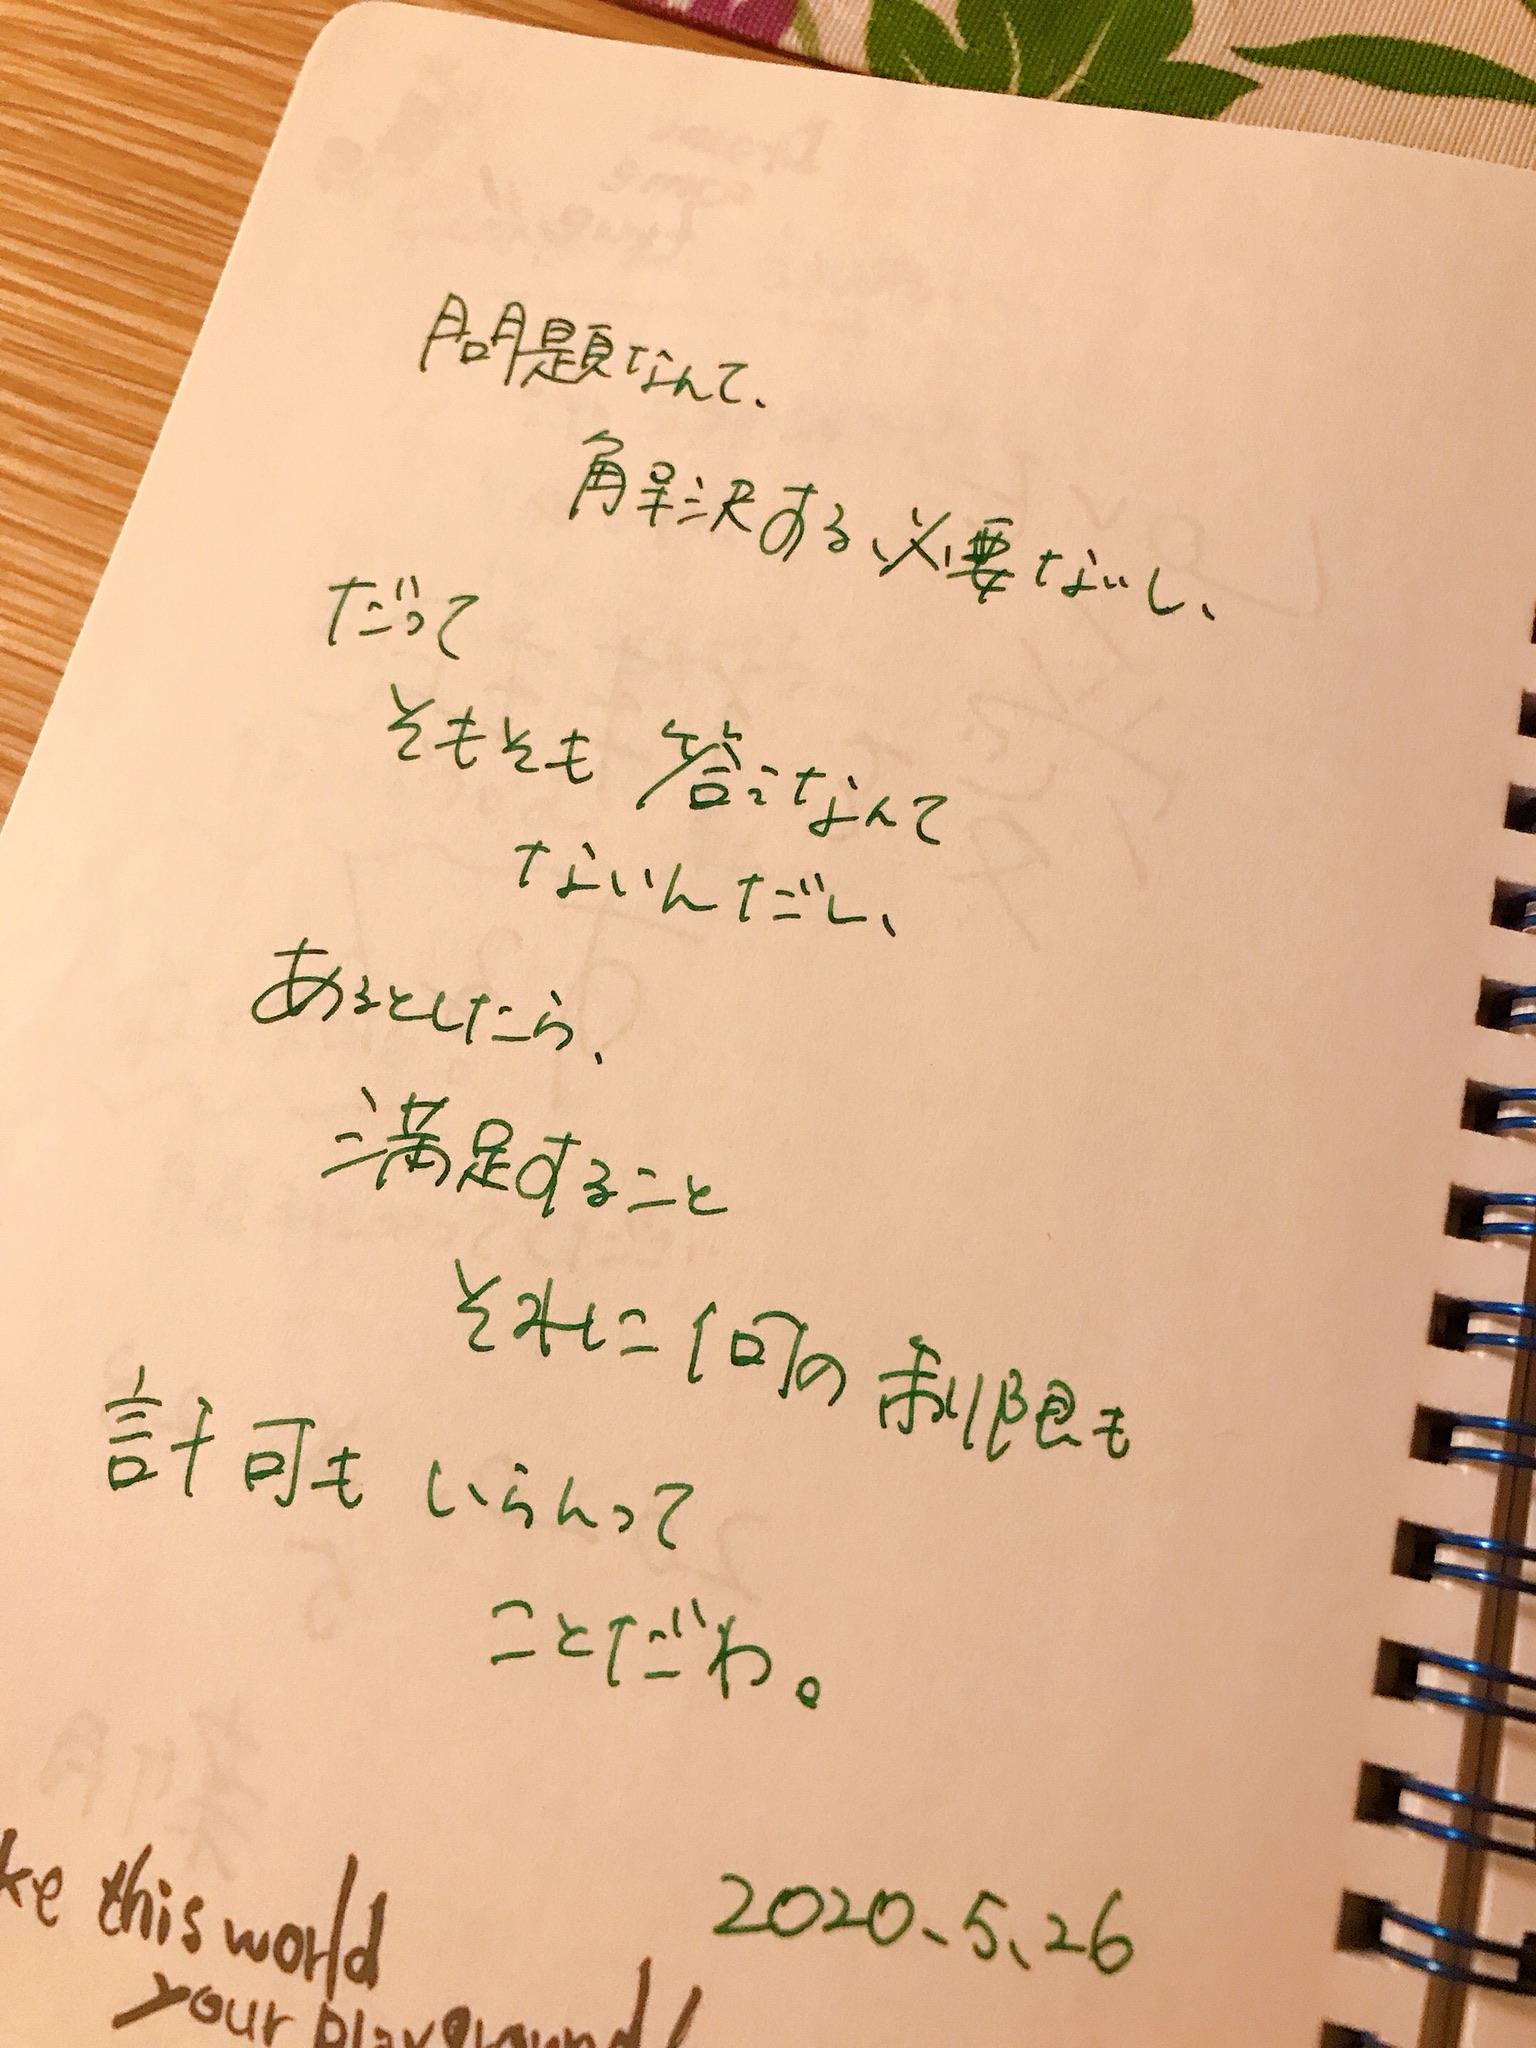 問題なんて、
解決する必要ないし、
だって
そもそも答えなんて
ないんだし、
あるとしたら、
満足すること
それに何の制限も
許可もいらんって
ことだわ。
2020、5、26
ke this world
your playground!